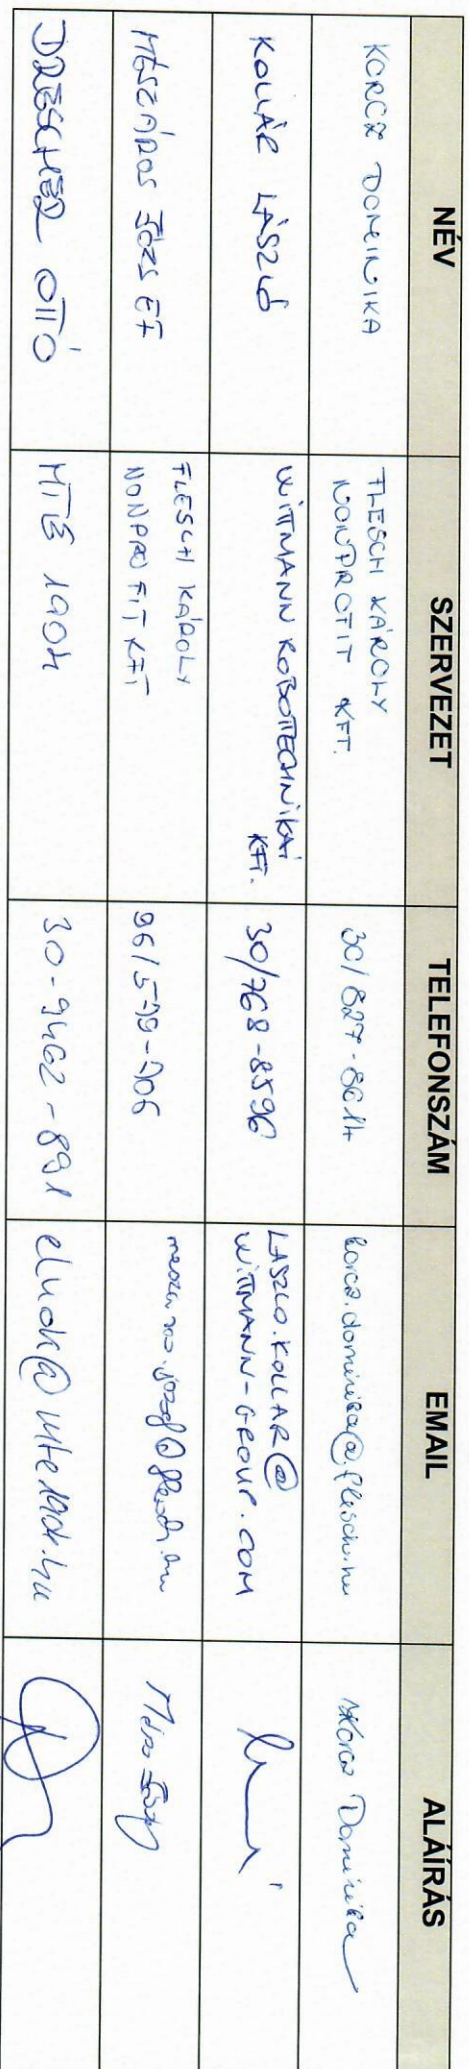 NÉV SZERVEZET TELEFONSZÁM EMAIL ALÁÍRÁS
KORCZ DOMINIKA
FLESCH KÁROLY
NONPROFIT KFT.
30/827-8614
korcz.dominika@flesch.hu
Korcz Dominika
KOLLÁR LÁSZLÓ
WITTMANN ROBOTTECHNIKAI
KFT.
30/768-8596
LASZLO.KOLLAR@
WITTMANN-GROUP.COM
MÉSZÁROS JÓZSEF
FLESCH KÁROLY
NONPROFIT KFT
96/579-706
meszaros.jozsef@flesch.hu
DRESCHER OTTÓ
MTE 1904
30-9462-891
elnok@mte1904.hu